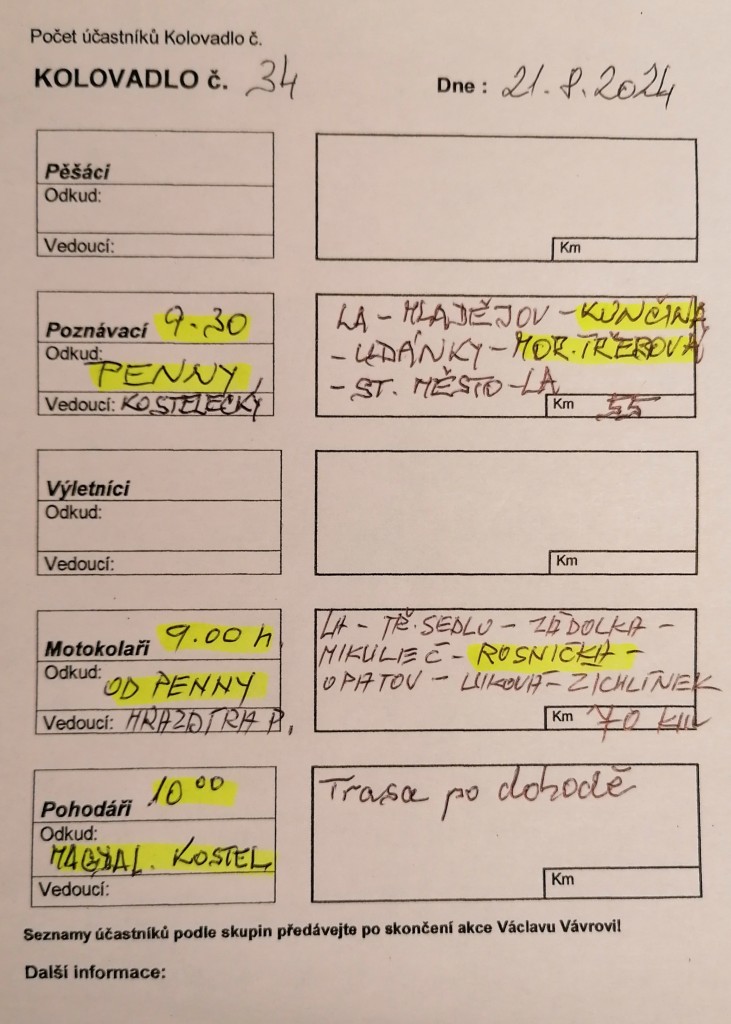 Počet účastníků Kolovadlo č.
KOLOVADLO č. 34
Dne : 21.8.2024
Pěšáci
Odkud:
Vedoucí:
Km
Poznávací 9.30
Odkud:
PENNY
Vedoucí: KOSTELECKÝ
LA - MLADĚJOV - KUNČINA
- UDÁNKY - MOR. TŘEBOVÁ
- ST. MĚSTO - LA
Km 55
Výletníci
Odkud:
Vedoucí:
Km
Motokolaři 9.00 h
Odkud:
OD PENNY
Vedoucí: HRAZDIRA P.
LA - TŘ. SEDLO - ZÁDOLKA -
MIKULEČ - ROSNIČKA -
OPATOV - LUKOVÁ - ZICHLÍNEK
Km 70 KM
Pohodáři 10 00
Odkud:
MAGDAL. KOSTEL
Vedoucí:
Trasa po dohodě
Km
Seznamy účastníků podle skupin předávejte po skončení akce Václavu Vávrovi!
Další informace: